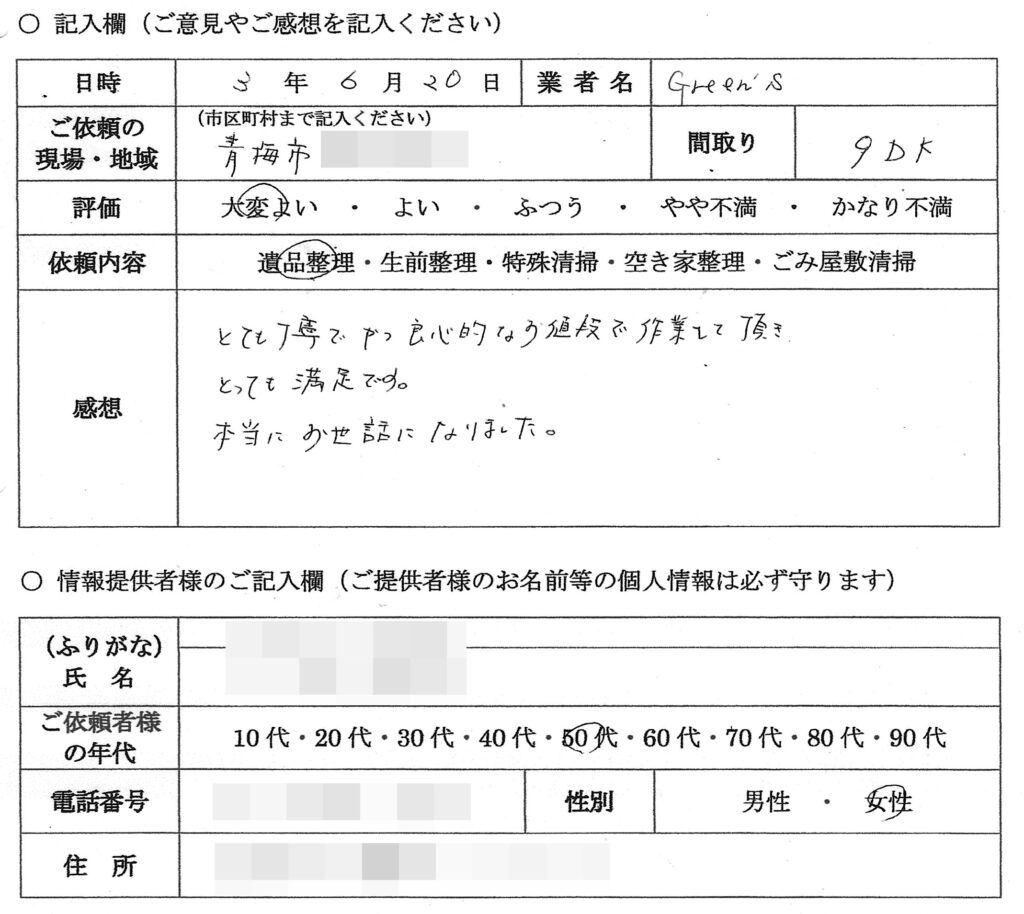 ○ 記入欄（ご意見やご感想を記入ください）
日時 3 年 6 月 20 日 業者名 Green's
ご依頼の現場・地域 （市区町村まで記入ください） 青梅市 間取り 9DK
評価 大変よい ・ よい ・ ふつう ・ やや不満 ・ かなり不満
依頼内容 遺品整理・生前整理・特殊清掃・空き家整理・ごみ屋敷清掃
感想
とても丁寧でかつ良心的なお値段で作業して頂き
とっても満足です。
本当にお世話になりました。
○ 情報提供者様のご記入欄（ご提供者様のお名前等の個人情報は必ず守ります）
（ふりがな）
氏 名
ご依頼者様の年代 10代・20代・30代・40代・50代・60代・70代・80代・90代
電話番号 性別 男性 ・ 女性
住 所